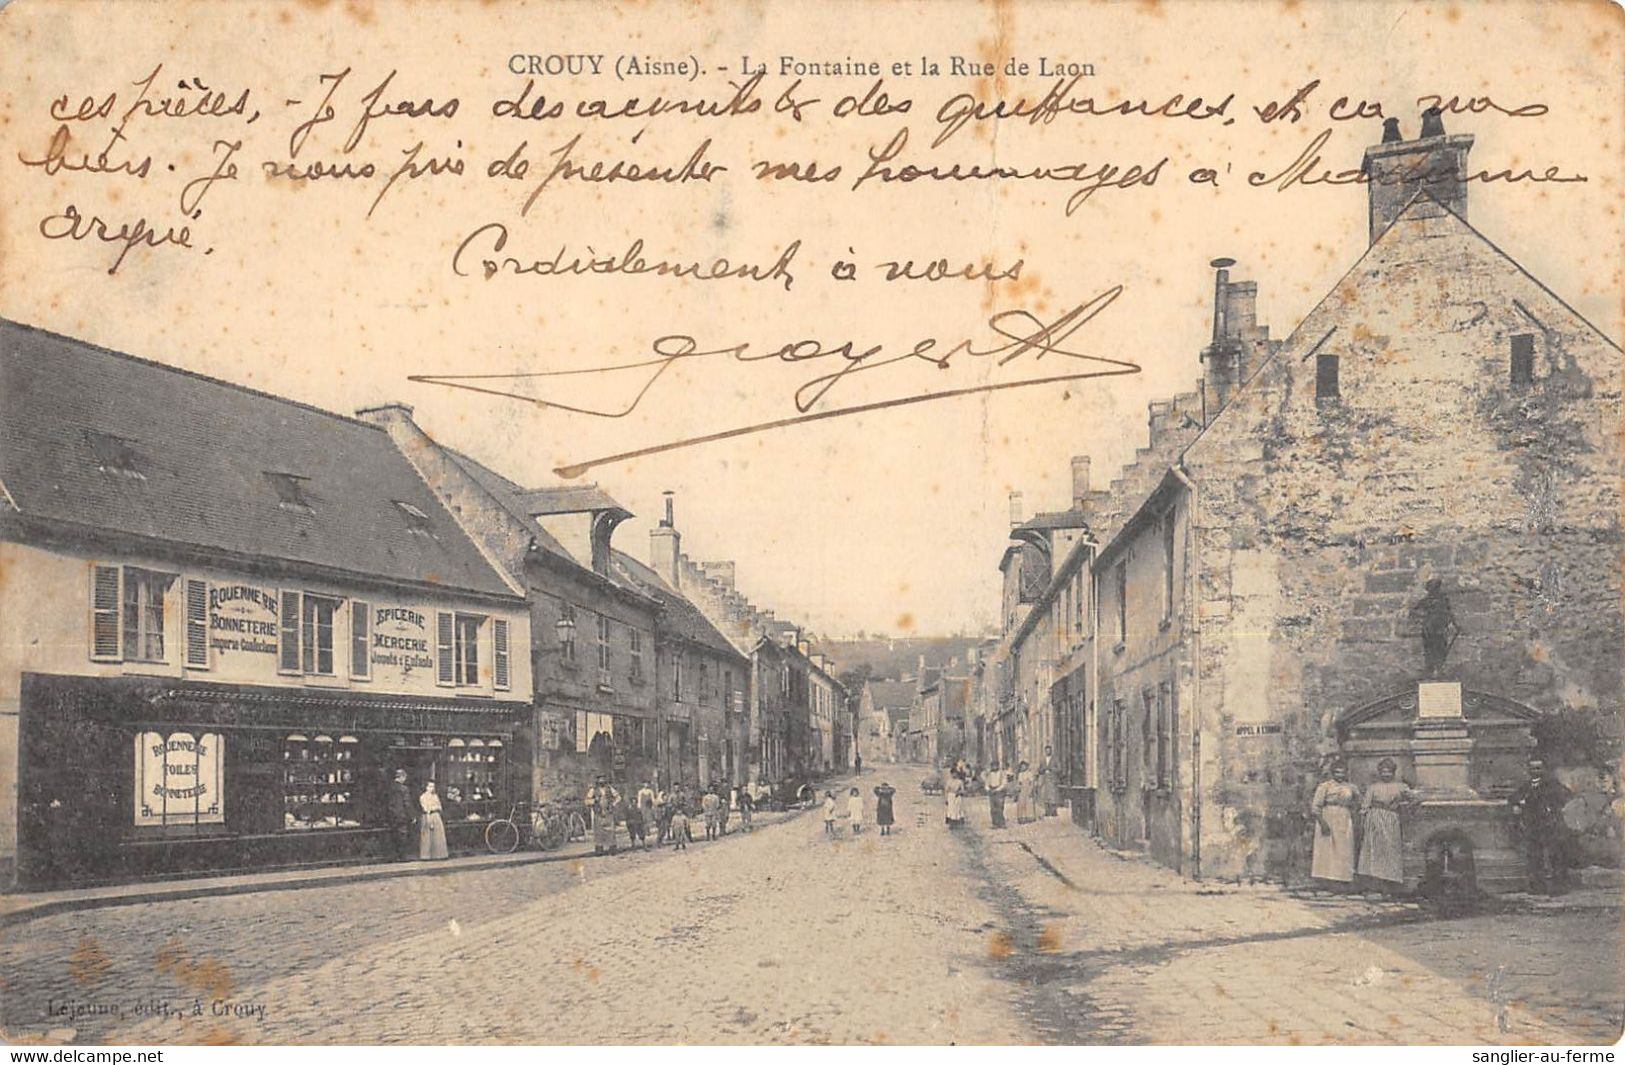 CROUY (Aisne). - La Fontaine et la Rue de Laon
ces pièces, - Je fais des acquits & des quittances, et ca va
bien. Je vous prie de présenter mes hommages à Madame
Cordialement à vous
ROUENNERIE
BONNETERIE
Lingerie-Confections
EPICERIE
MERCERIE
Jouets d'Enfants
ROUENNERIE
TOILES
BONNETERIE
Lejeune, édit., à Crouy
delcampe.net
sanglier-au-ferme